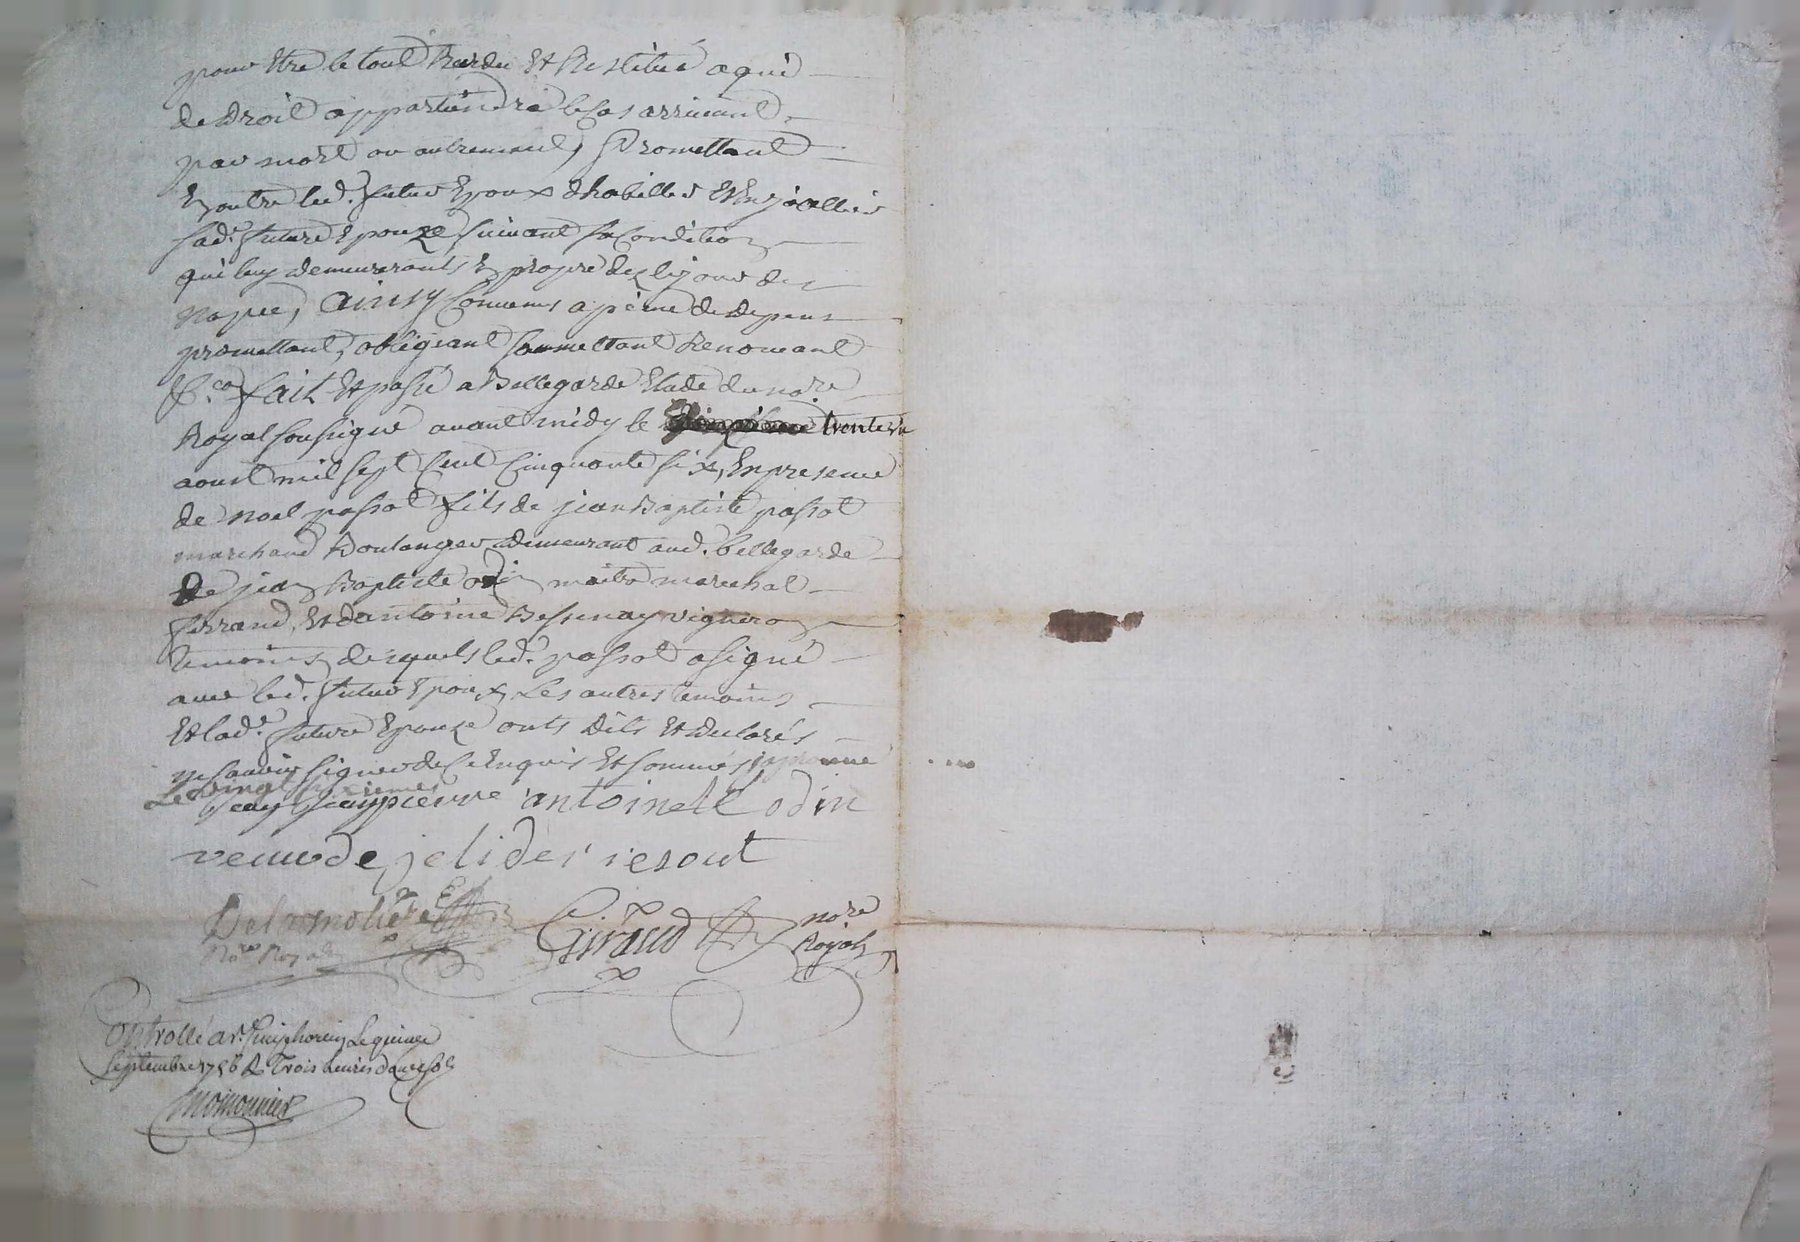 pour Etre le tout Rendu Et Restitué a qui
de droit appartiendra le Cas arrivant
par mort ou autrement, Promettant
En outre led. futur Epoux d'habiller Et Enjoallier
sad.e future Epouze suivant sa Condition
qui luy demeureronts En propre des le jour des
nopce, Ainsy Convenus a peine de depens
promettant, obligeant soumettant Renonceant
&.ca fait Et passé a Bellegarde Etude du no.re
Royal soussigné avant midy le trente un
aoust mil sept Cent Cinquante six, En presence
de Noel passot fils de jean Baptiste passot
marchand Boulanger demeurant aud. bellegarde
De jean Baptiste odin maitre marechal
ferrand, Et dantoine Bessenay vigneron
temoins desquels led. passot a signé
avec led. futur Epoux, Les autres temoins
Et lad.e future Epouze onts dits Et declarés
ne sauoir signer de Ce Enquis Et sommés
jean pierre antoinete odin
veuve de
Delamoliere Giraud no.re
No.re Royal Royal
Controllé a s.t Simphorien Le premier
Septembre 1756 R. Trois Livres douze sols